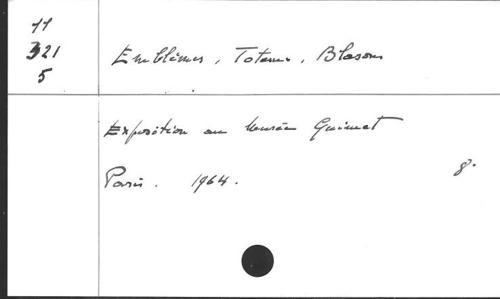 11
321
5
Emblèmes, Totems, Blasons
Exposition au Musée Guimet
Paris. 1964.
8°